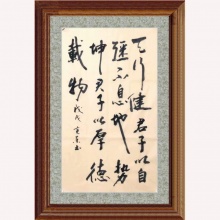 天行健君子以自
彊不息地勢
坤君子以厚德
載物